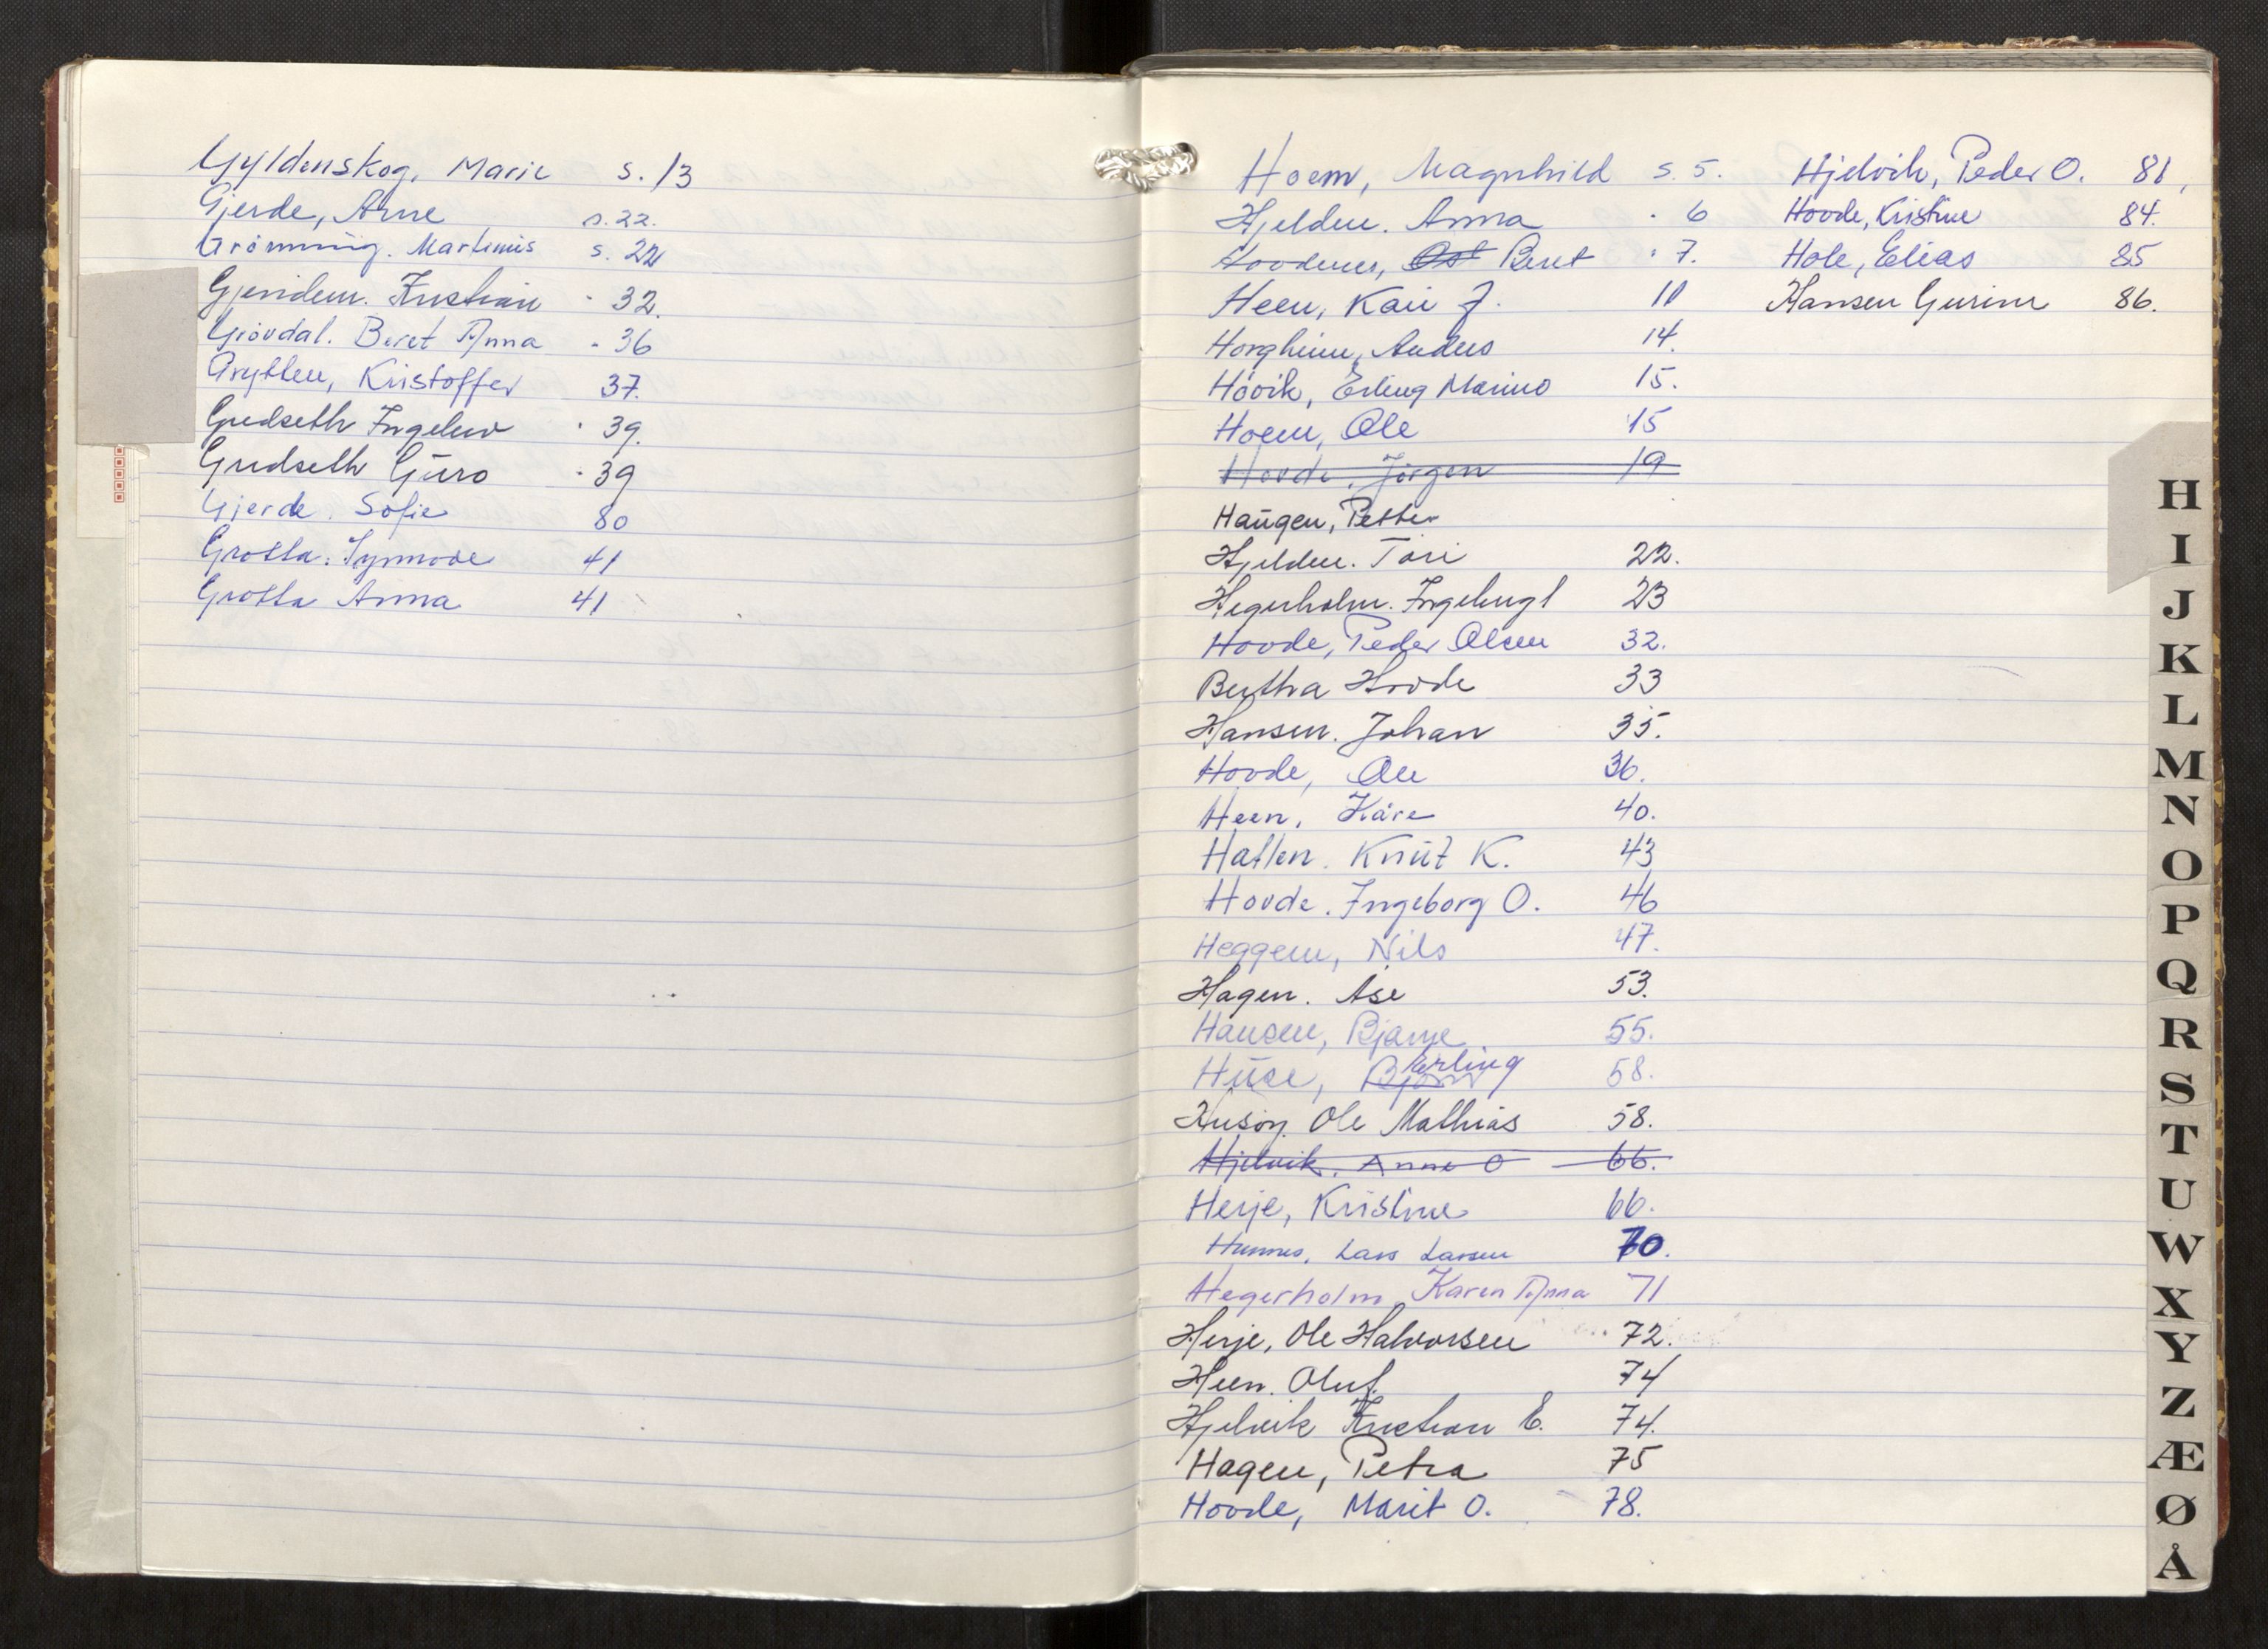 Gyldenskog, Marie s. 13
Gjerde, Arne s. 22.
Grönning. Martinus s. 22
Gjeridem. Kristian " 32.
Grövdal. Beret Anna " 36
Grytten, Kristoffer 37.
Gredseth Ingeleiv " 39.
Gredseth Guro " 39
Gjerde. Sofie 80
Grotta. Synnøve 41
Grotta Anna 41
Hoem, Magnhild s. 5.
Hjelden. Anna " 6
Hovdenes, Beret " 7.
Heen, Kari J. 10
Horgheim, Anders 14.
Hövik, Erling Marino 15.
Hoem, Ole 15
Hovde, Jörgen 19
Haugen, Petter
Hjelden. Tori 22.
Hegerholm. 23
Hovde, Peder Olsen 32.
Bertha Hovde 33
Hansen. Johan 35.
Hovde, Ole 36.
Heen, Kåre 40.
Hatlen. Knut K. 43
Hovde. Ingeborg O. 46
Heggem, Nils 47.
Hagen. Åse 53.
Hansen, Bjarne 55.
Huse, Erling 58.
Husöy. Ole Mathias 58.
Hjelvik. Anne O 66.
Herje, Kristine 66.
Lars Larsen 70.
Hegerholm, Karen Anna 71
Herje, Ole Halvorsen 72.
Heen. Oluf. 74
Hjelvik Kristian E. 74.
Hagen, Petra 75
Hovde, Marit O. 78.
Hjelvik, Peder O. 81,
Hovde, Kristine 84.
Hole, Elias 85
Hansen Gurine 86.
H
I
J
K
L
M
N
O
P
Q
R
S
T
U
W
X
Y
Z
Æ
Ø
Å